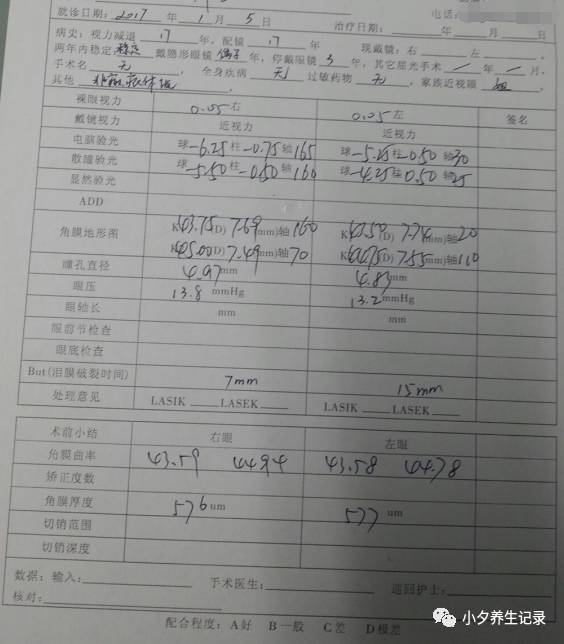 就诊日期: 2017 年 1 月 5 日 治疗日期: 年 月 日 电话:
病史: 视力减退 17 年, 配镜 17 年 现戴镜: 右 左 。
两年内稳定 稳定 戴隐形眼镜 偶尔 年, 停戴眼镜 3 年, 其它屈光手术 / 年 / 月,
手术名 无 , 全身疾病 无 过敏药物 无 , 家族近视眼
其他
裸眼视力 0.05 右 0.05 左 签名
戴镜视力 近视力 近视力
电脑验光 球 -6.25 柱 -0.75 轴 165 球 -5.25 柱 -0.50 轴 30
散瞳验光 球 -5.50 柱 -0.50 轴 160 球 -4.25 柱 0.50 轴 25
显然验光
ADD
角膜地形图 K 43.75 (D) 7.69 mm) 轴 160 K 43.50 (D) 7.74 mm) 轴 20
K 45.00 (D) 7.49 mm) 轴 70 K 44.75 (D) 7.55 mm) 轴 110
瞳孔直径 4.97 mm 4.83 mm
眼压 13.8 mmHg 13.2 mmHg
眼轴长 mm mm
眼前节检查
眼底检查
But(泪膜破裂时间) 7mm 15mm
处理意见 LASIK LASEK LASIK LASEK
术前小结 右眼 左眼
角膜曲率 43.59 44.94 43.58 44.78
矫正度数
角膜厚度 576 um 577 um
切销范围
切销深度
数据: 输入: 手术医生: 巡回护士:
核对:
配合程度: A好 B一般 C差 D极差
小夕养生记录